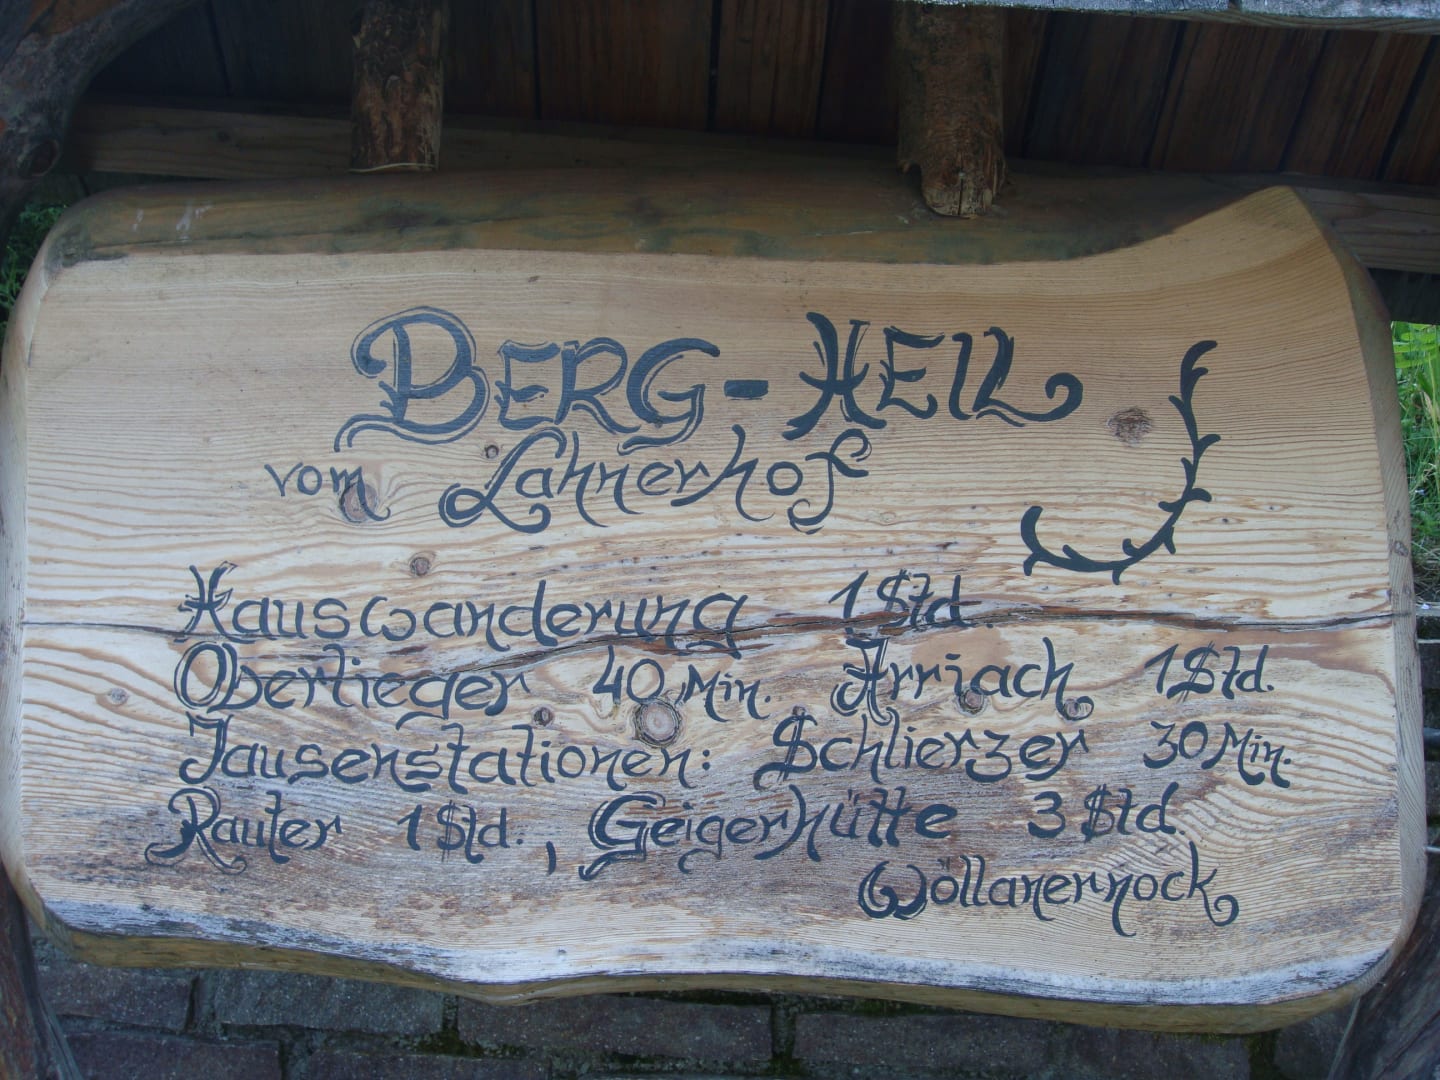 BERG-HEIL
vom Lahnerhof
Hauswanderung 1 Std.
Obertieger 40 Min. Arriach 1 Std.
Jausenstationen: Schlierzer 30 Min.
Rauter 1 Std., Geigerhütte 3 Std.
Wöllanernock